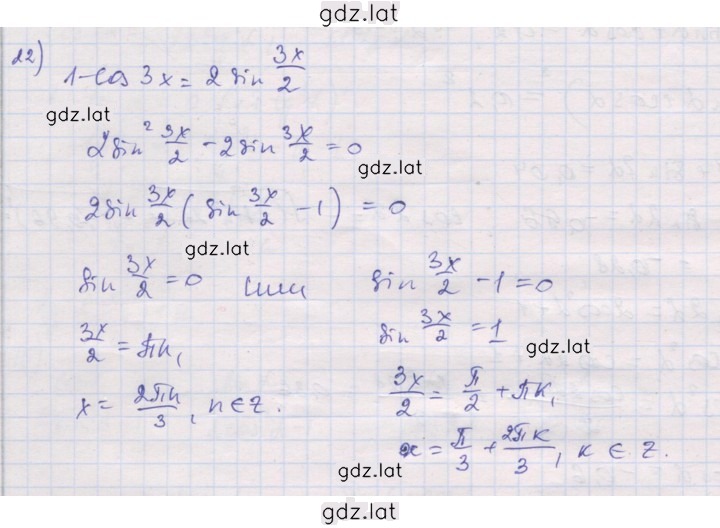 gdz.lat
22)
1-cos 3x = 2 sin 3x/2
gdz.lat
2sin² 3x/2 - 2sin 3x/2 = 0
gdz.lat
2sin 3x/2 ( sin 3x/2 - 1 ) = 0
gdz.lat
sin 3x/2 = 0 или sin 3x/2 - 1 = 0
3x/2 = πn, sin 3x/2 = 1
gdz.lat
x = 2πn/3, n ∈ Z. 3x/2 = π/2 + πk,
x = π/3 + 2πk/3, k ∈ Z.
gdz.lat
gdz.lat